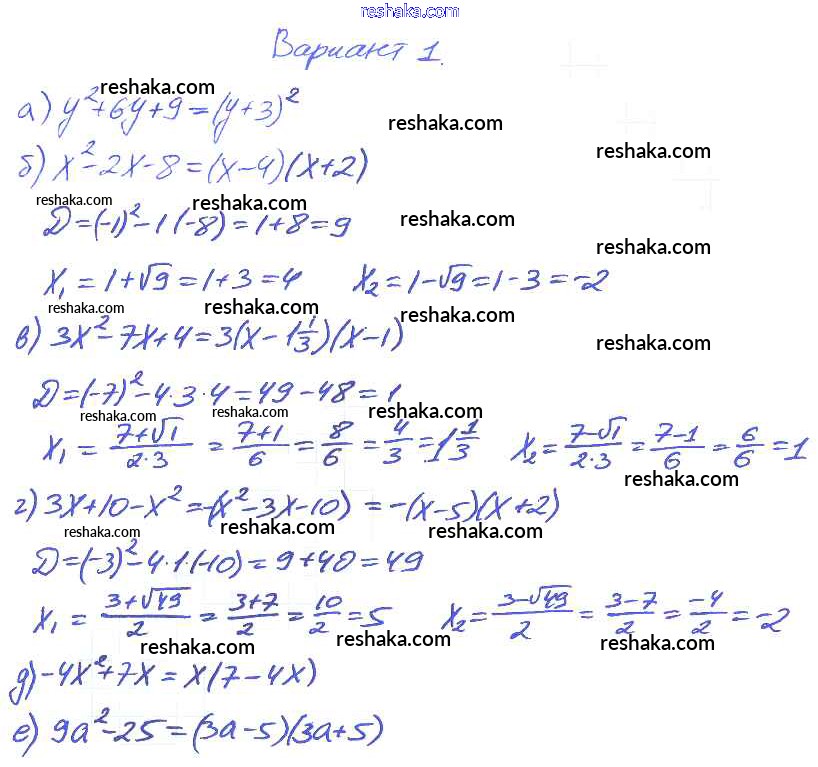 reshaka.com
Вариант 1.
reshaka.com
а) y²+6y+9=(y+3)²
reshaka.com
reshaka.com
б) x²-2x-8=(x-4)(x+2)
reshaka.com reshaka.com reshaka.com
D=(-1)²-1·(-8)=1+8=9
reshaka.com
x₁=1+√9=1+3=4 x₂=1-√9=1-3=-2
reshaka.com reshaka.com reshaka.com
в) 3x²-7x+4=3(x-1 1/3)(x-1)
reshaka.com
D=(-7)²-4·3·4=49-48=1
reshaka.com reshaka.com reshaka.com
x₁=(7+√1)/(2·3)=(7+1)/6=8/6=4/3=1 1/3 x₂=(7-√1)/(2·3)=(7-1)/6=6/6=1
reshaka.com
г) 3x+10-x²=-(x²-3x-10)=-(x-5)(x+2)
reshaka.com reshaka.com reshaka.com
D=(-3)²-4·1·(-10)=9+40=49
x₁=(3+√49)/2=(3+7)/2=10/2=5 x₂=(3-√49)/2=(3-7)/2=-4/2=-2
reshaka.com reshaka.com reshaka.com
д) -4x²+7x=x(7-4x)
е) 9a²-25=(3a-5)(3a+5)